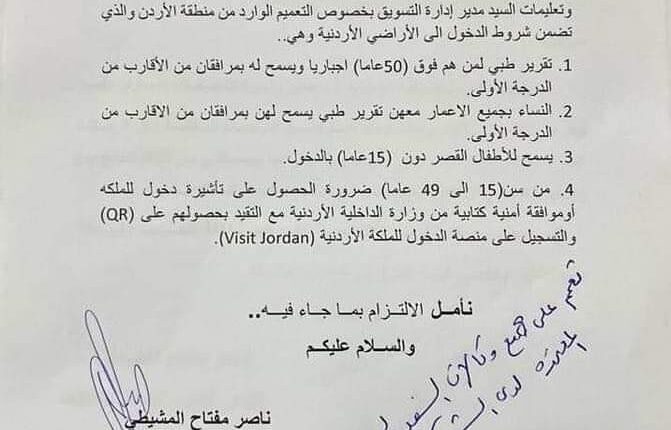 وتعليمات السيد مدير إدارة التسويق بخصوص التعميم الوارد من منطقة الأردن والذي
تضمن شروط الدخول الى الأراضي الأردنية وهي..
1. تقرير طبي لمن هم فوق (50عاما) اجباريا ويسمح له بمرافقان من الأقارب من
الدرجة الأولى.
2. النساء بجميع الاعمار معهن تقرير طبي يسمح لهن بمرافقان من الاقارب من
الدرجة الأولى.
3. يسمح للأطفال القصر دون (15عاما) بالدخول.
4. من سن(15 الى 49 عاما) ضرورة الحصول على تأشيرة دخول للملكه
أوموافقة أمنية كتابية من وزارة الداخلية الأردنية مع التقيد بحصولهم على (QR)
والتسجيل على منصة الدخول للملكة الأردنية (Visit Jordan).
نأمل الالتزام بما جاء فيه..
والسلام عليكم
تعمم على جميع وكالات السفر
المعتمدة لدى
ناصر مفتاح المشيطي